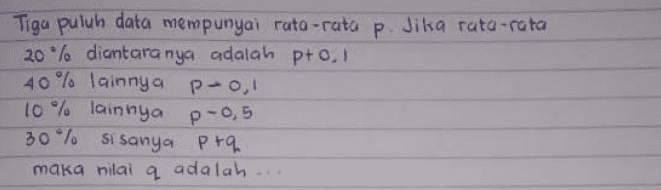 Tiga puluh data mempunyai rata-rata p. Jika rata-rata
20% diantaranya adalah p+0.1
40% lainnya p-0,1
10% lainnya p-0,5
30% sisanya p+q
maka nilai q adalah ...